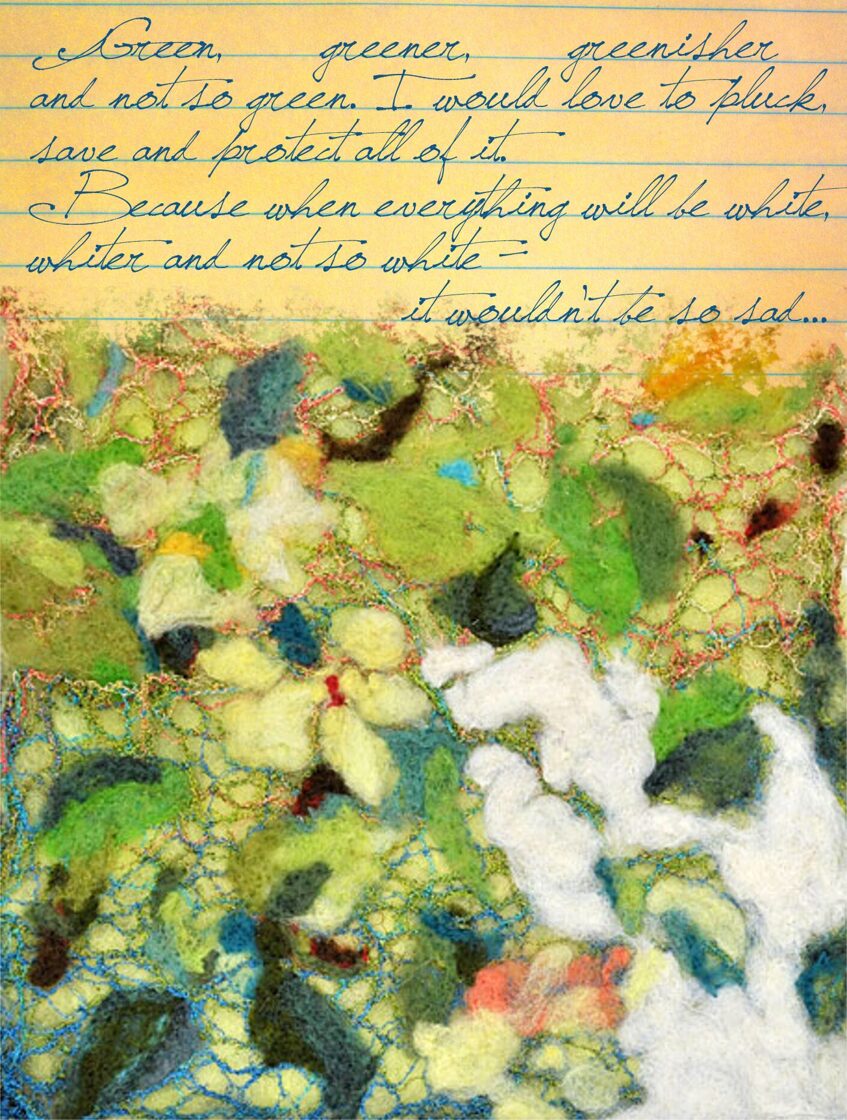 Green, greener, greenisher
and not so green. I would love to pluck,
save and protect all of it.
Because when everything will be white,
whiter and not so white -
it wouldn't be so sad...